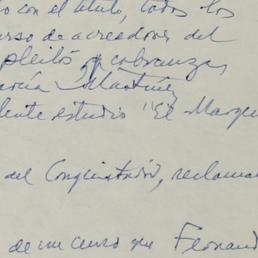 con el título, todos los
curso de acreedores del
pleitos y cobranzas
García Martínez
lente estudio "El Marqu
del Conquistador, reclama
de un censo que Fernand